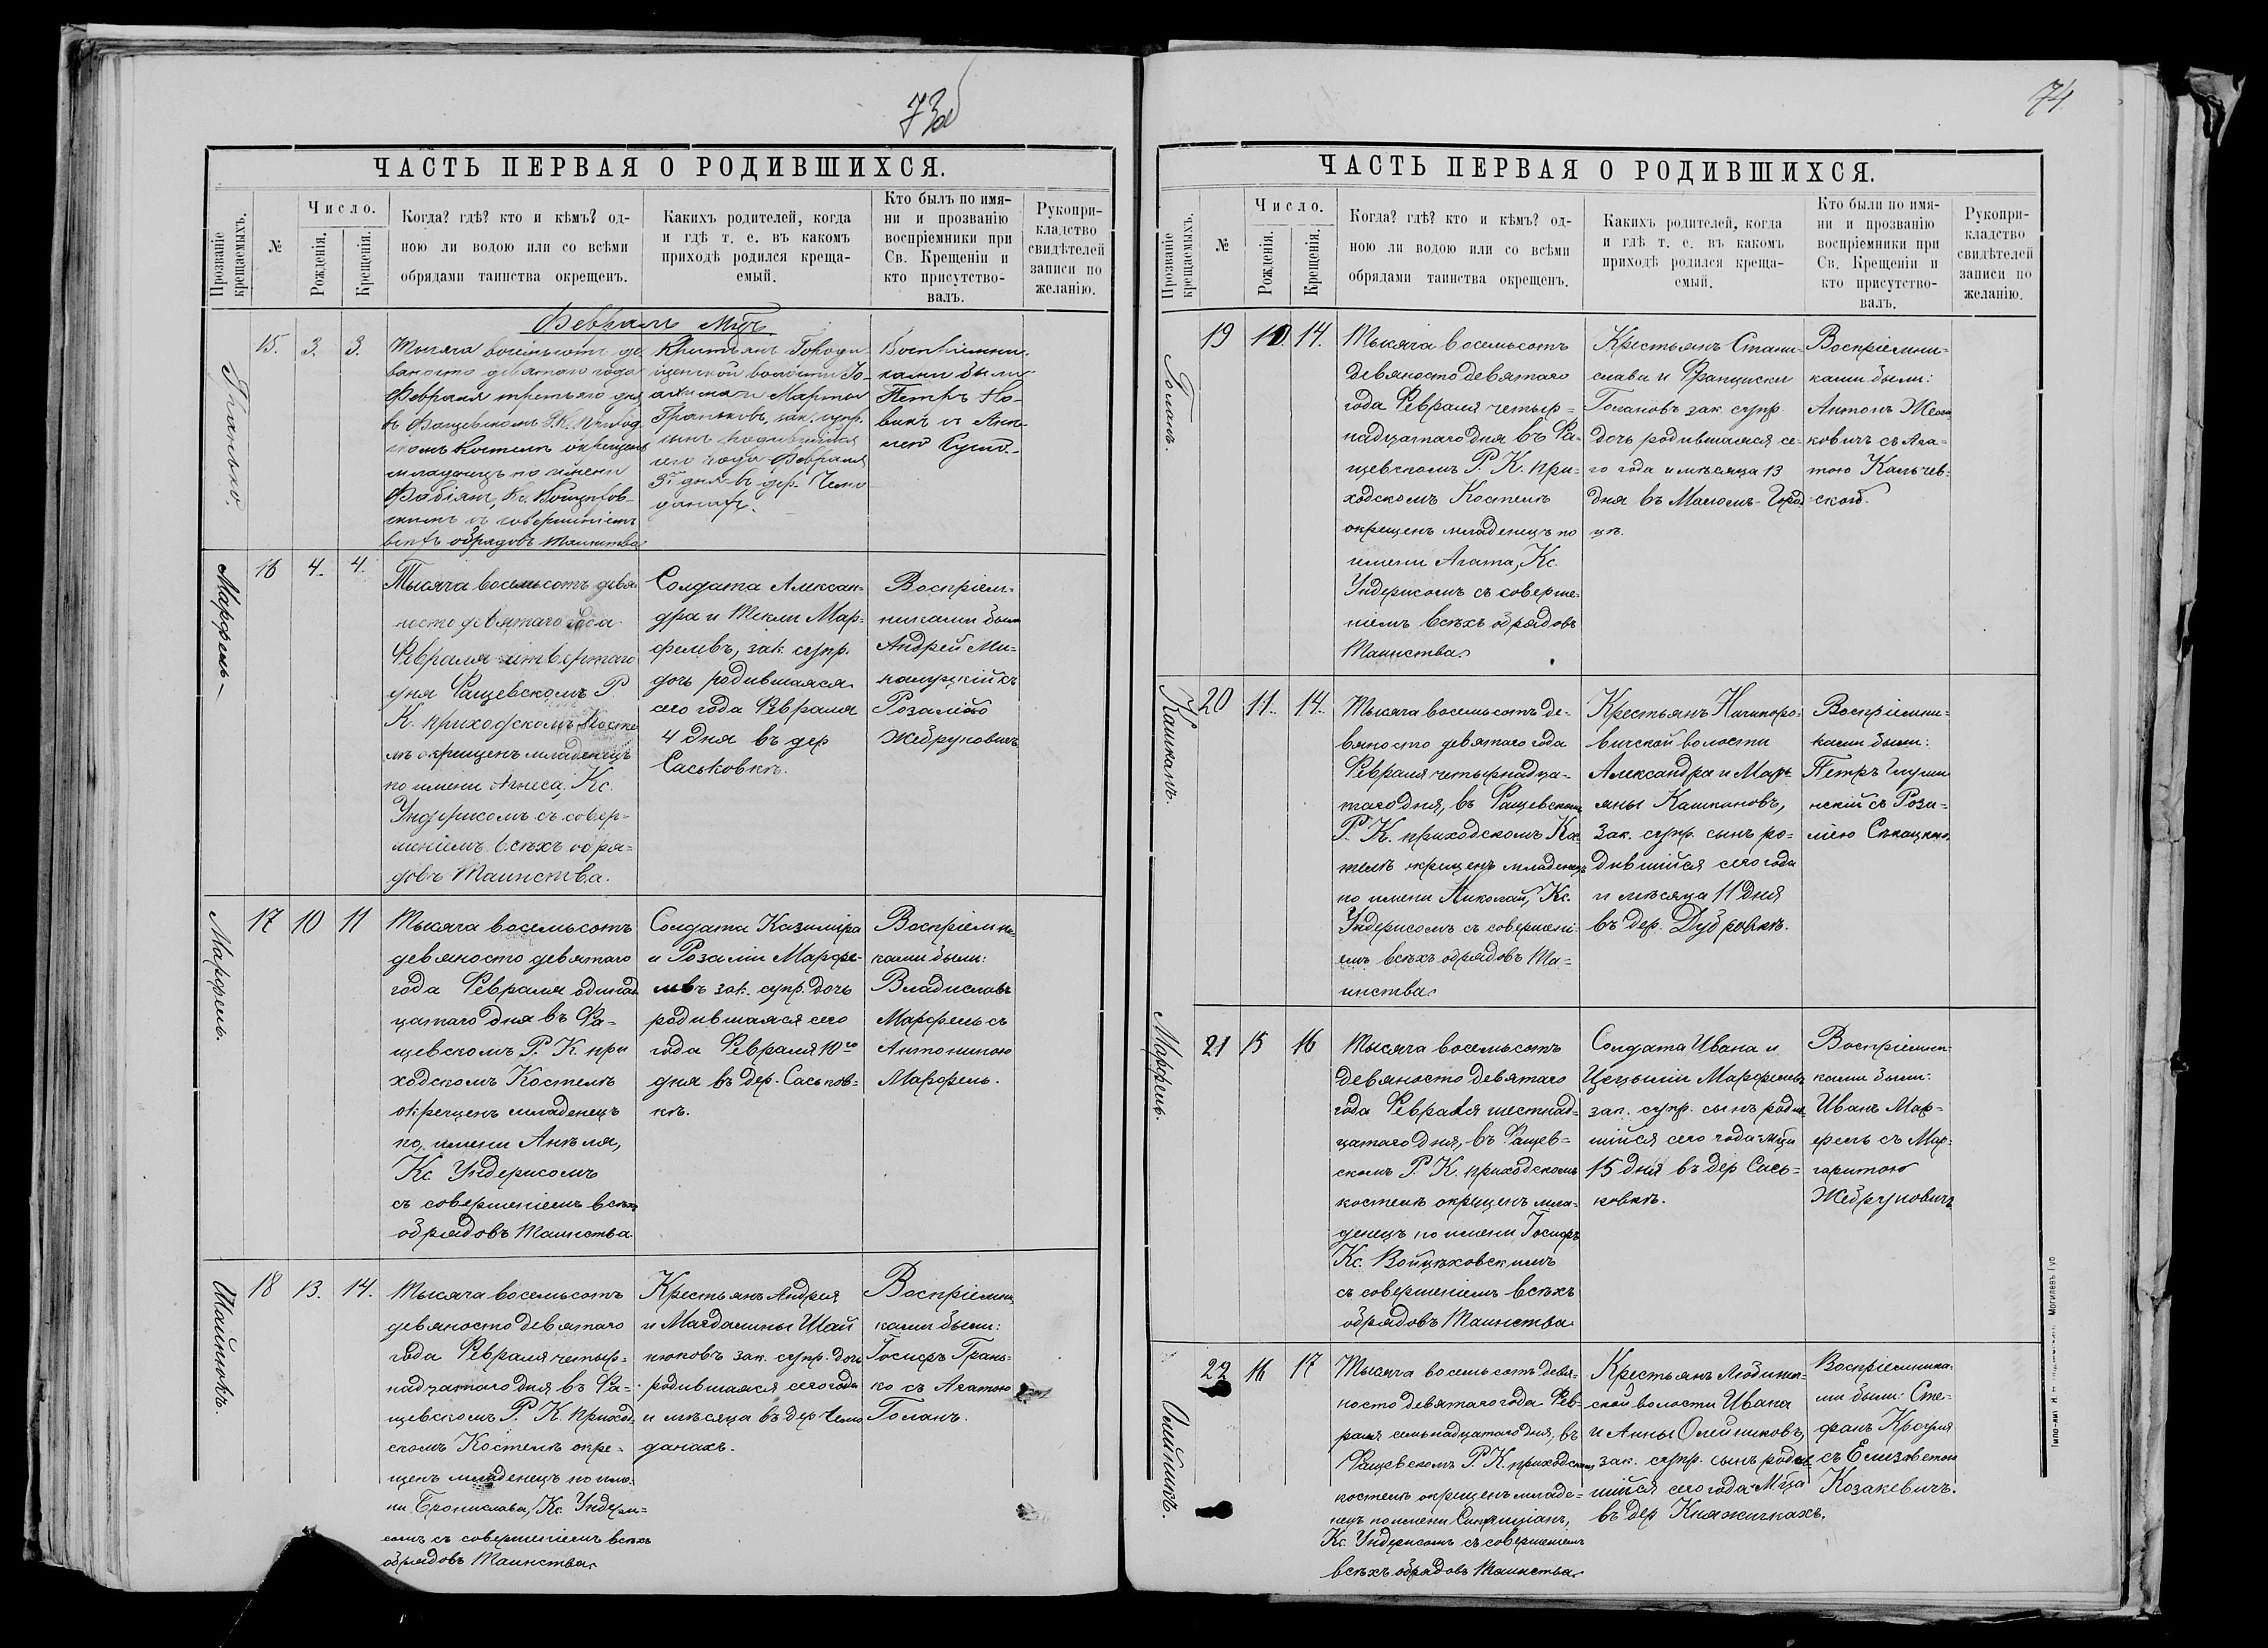 73об
ЧАСТЬ ПЕРВАЯ О РОДИВШИХСЯ.
Прозваніе крещаемыхъ.
№
Число.
Рожденія.
Крещенія.
Когда? гдѣ? кто и кѣмъ? од-
ною ли водою или со всѣми
обрядами таинства окрещенъ.
Какихъ родителей, когда
и гдѣ т. е. въ какомъ
приходѣ родился креща-
емый.
Кто былъ по имя-
ни и прозванію
воспріемники при
Св. Крещеніи и
кто присутство-
валъ.
Рукопри-
кладство
свидѣтелей
записи по
желанію.
Февраль Мцъ
Гранько.
15. 3. 3.
Тысяча восемьсотъ де-
вяносто девятаго года
Февраля третьяго дня
въ Фащевскомъ Р. К. приход-
скомъ Костелѣ окрещенъ
младенецъ по имени
Фабіянъ, Кс. Войцѣхов-
скимъ съ совершеніемъ
всѣхъ обрядовъ таинства.
Крестьянъ Городи-
щенской волости Іо-
ахима и Марты
Граньковъ, зак. супр.
сынъ родившійся
сего года Февраля
3го дня въ дер. Чемо-
данахъ.
Воспріемни-
ками были
Петръ Но-
викъ съ Анн-
ею
Марфель
16 4. 4.
Тысяча восемьсотъ девя-
носто девятаго года
Февраля четвертаго
дня Фащевскомъ Р.
К. приходскомъ Косте-
лѣ окрещенъ младенецъ
по имени Агнеса, Кс.
Ундерисомъ съ совер-
шеніемъ всѣхъ обря-
довъ Таинства.
Солдата Алексан-
дра и Теклии Мар-
фелевъ, зак. супр.
дочь родившаяся
сего года Февраля
4 дня въ дер
Саськовкѣ.
Воспріем-
никами были
Андрей Ми-
налуцкій съ
Розалією
Жебруновичъ
Марфель.
17 10 11
Тысяча восемьсотъ
девяносто девятаго
года Февраля одинад
цатаго дня въ Фа-
щевскомъ Р. К. при
ходскомъ Костелѣ
окрещенъ младенецъ
по имени Анѣля,
Кс. Ундерисомъ
съ совершеніемъ всѣхъ
обрядовъ Таинства
Солдата Казиміра
и Розаліи Марфе-
левъ зак. супр. дочь
родившаяся сего
года Февраля 10го
дня въ дер. Саськов-
кѣ.
Воспріемни-
ками были:
Владиславъ
Марфель съ
Антониною
Марфель.
Шайнюкъ.
18 13. 14.
Тысяча восемьсотъ
девяносто девятаго
года Февраля четыр-
надцатаго дня въ Фа-
щевскомъ Р. К. приход-
скомъ Костелѣ окре-
щенъ младенецъ по име-
ни Брониславa, Кс. Ундери-
сомъ съ совершеніемъ всѣхъ
обрядовъ Таинства.
Крестьянъ Андрея
и Магдалины Шай
нюковъ зак. супр. дочь
родившаяся сего года
и мѣсяца въ дер Чемо
данахъ.
Воспріемни
ками были:
Іосифъ Грань-
ко съ Агатою
Голанъ.
74
ЧАСТЬ ПЕРВАЯ О РОДИВШИХСЯ.
Прозваніе крещаемыхъ.
№
Число.
Рожденія.
Крещенія.
Когда? гдѣ? кто и кѣмъ? од-
ною ли водою или со всѣми
обрядами таинства окрещенъ.
Какихъ родителей, когда
и гдѣ т. е. въ какомъ
приходѣ родился креща-
емый.
Кто были по имя-
ни и прозванію
воспріемники при
Св. Крещеніи и
кто присутство-
валъ.
Рукопри-
кладство
свидѣтелей
записи по
желанію.
Голанъ.
19 14.
Тысяча восемьсотъ
девяносто девятаго
года Февраля четыр-
надцатаго дня въ Фа-
щевскомъ Р. К. при-
ходскомъ Костелѣ
окрещенъ младенецъ по
имени Агата, Кс.
Ундерисомъ съ соверше-
ніемъ всѣхъ обрядовъ
Таинства.
Крестьянъ Стани-
слава и Франциски
Голановъ зак. супр.
дочь родившаяся се-
го года и мѣсяца 13
дня въ Маломъ-Город-
цѣ.
Воспріемни-
ками были:
Антонъ
ковичъ съ Ага-
тою Кальчев-
ской.
Кашканъ.
20 11. 14.
Тысяча восемьсотъ де-
вяносто девятаго года
Февраля четырнадца-
таго дня, въ Фащевскомъ
Р. К. приходскомъ Кос
телѣ окрещенъ младенецъ
по имени Николай, Кс.
Ундерисомъ съ совершені-
емъ всѣхъ обрядовъ Та-
инства.
Крестьянъ Ничипоро-
вичской волости
Александра и Марь-
яны Кашкановъ,
зак. супр. сынъ ро-
дившійся сего года
и мѣсяца 11 дня
въ дер. Дубровкѣ.
Воспріемни-
ками были:
Петръ Глуши
нскій съ Роза-
лією Сѣкацкою.
Марфель.
21 15 16
Тысяча восемьсотъ
девяносто девятаго
года Февраля шестнад-
цатаго дня, въ Фащев-
скомъ Р. К. приходскомъ
костелѣ окрещенъ мла-
денецъ по имени Іосифъ
Кс. Войцѣховскимъ
съ совершеніемъ всѣхъ
обрядовъ Таинства
Солдата Ивана и
Цецыліи Марфелевъ
зак. супр. сынъ родив-
шійся сего года Мца
15 дня въ дер Сась-
ковкѣ.
Воспріемни-
ками были:
Иванъ Мар-
фель съ Мар-
гаритою
Жебруновичъ
Олейникъ.
22 16 17
Тысяча восемьсотъ девя-
носто девятаго года Фев-
раля семьнадцатаго дня, въ
Фащевскомъ Р. К. приходскомъ
костелѣ окрещенъ младе-
нецъ по имени
Кс. Ундерисомъ съ совершеніемъ
всѣхъ обрядовъ Таинства.
Крестьянъ Любини-
ской волости Ивана
и Анны Олейниковъ,
зак. супр. сынъ родив-
шійся сего года Мца
въ дер Княжичкахъ.
Воспріемника-
ми были: Сте-
фанъ
съ Елизаветою
Козакевичъ.